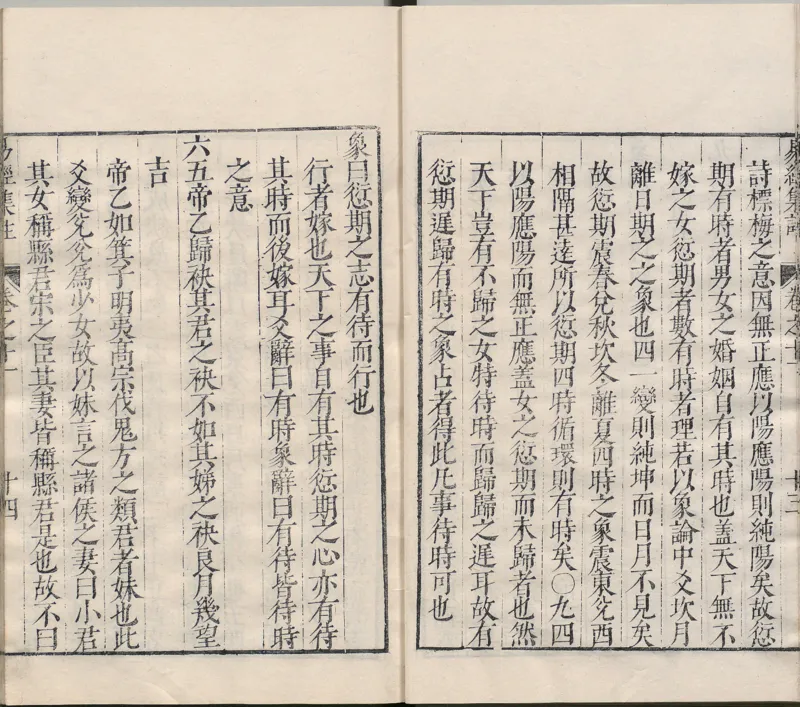 易經集註　卷之十一　十三
詩標梅之意因無正應以陽應陽則純陽矣故愆
期有時者男女之婚姻自有其時也蓋天下無不
嫁之女愆期者數有時者理若以象論中爻坎月
離日期之之象也四一變則純坤而日月不見矣
故愆期震春兌秋坎冬離夏四時之象震東兌西
相隔甚遠所以愆期四時循環則有時矣〇九四
以陽應陽而無正應蓋女之愆期而未歸者也然
天下豈有不歸之女特待時而歸歸之遲耳故有
愆期遲歸有時之象占者得此凡事待時可也
象曰愆期之志有待而行也
行者嫁也天下之事自有其時愆期之心亦有待
其時而後嫁耳爻辭曰有時象辭曰有待皆待時
之意
六五帝乙歸妹其君之袂不如其娣之袂良月幾望
吉
帝乙如箕子明夷高宗伐鬼方之類君者妹也此
爻變兌兌爲少女故以妹言之諸侯之妻曰小君
其女稱縣君宋之臣其妻皆稱縣君是也故不曰
易經集註　卷之十一　十四